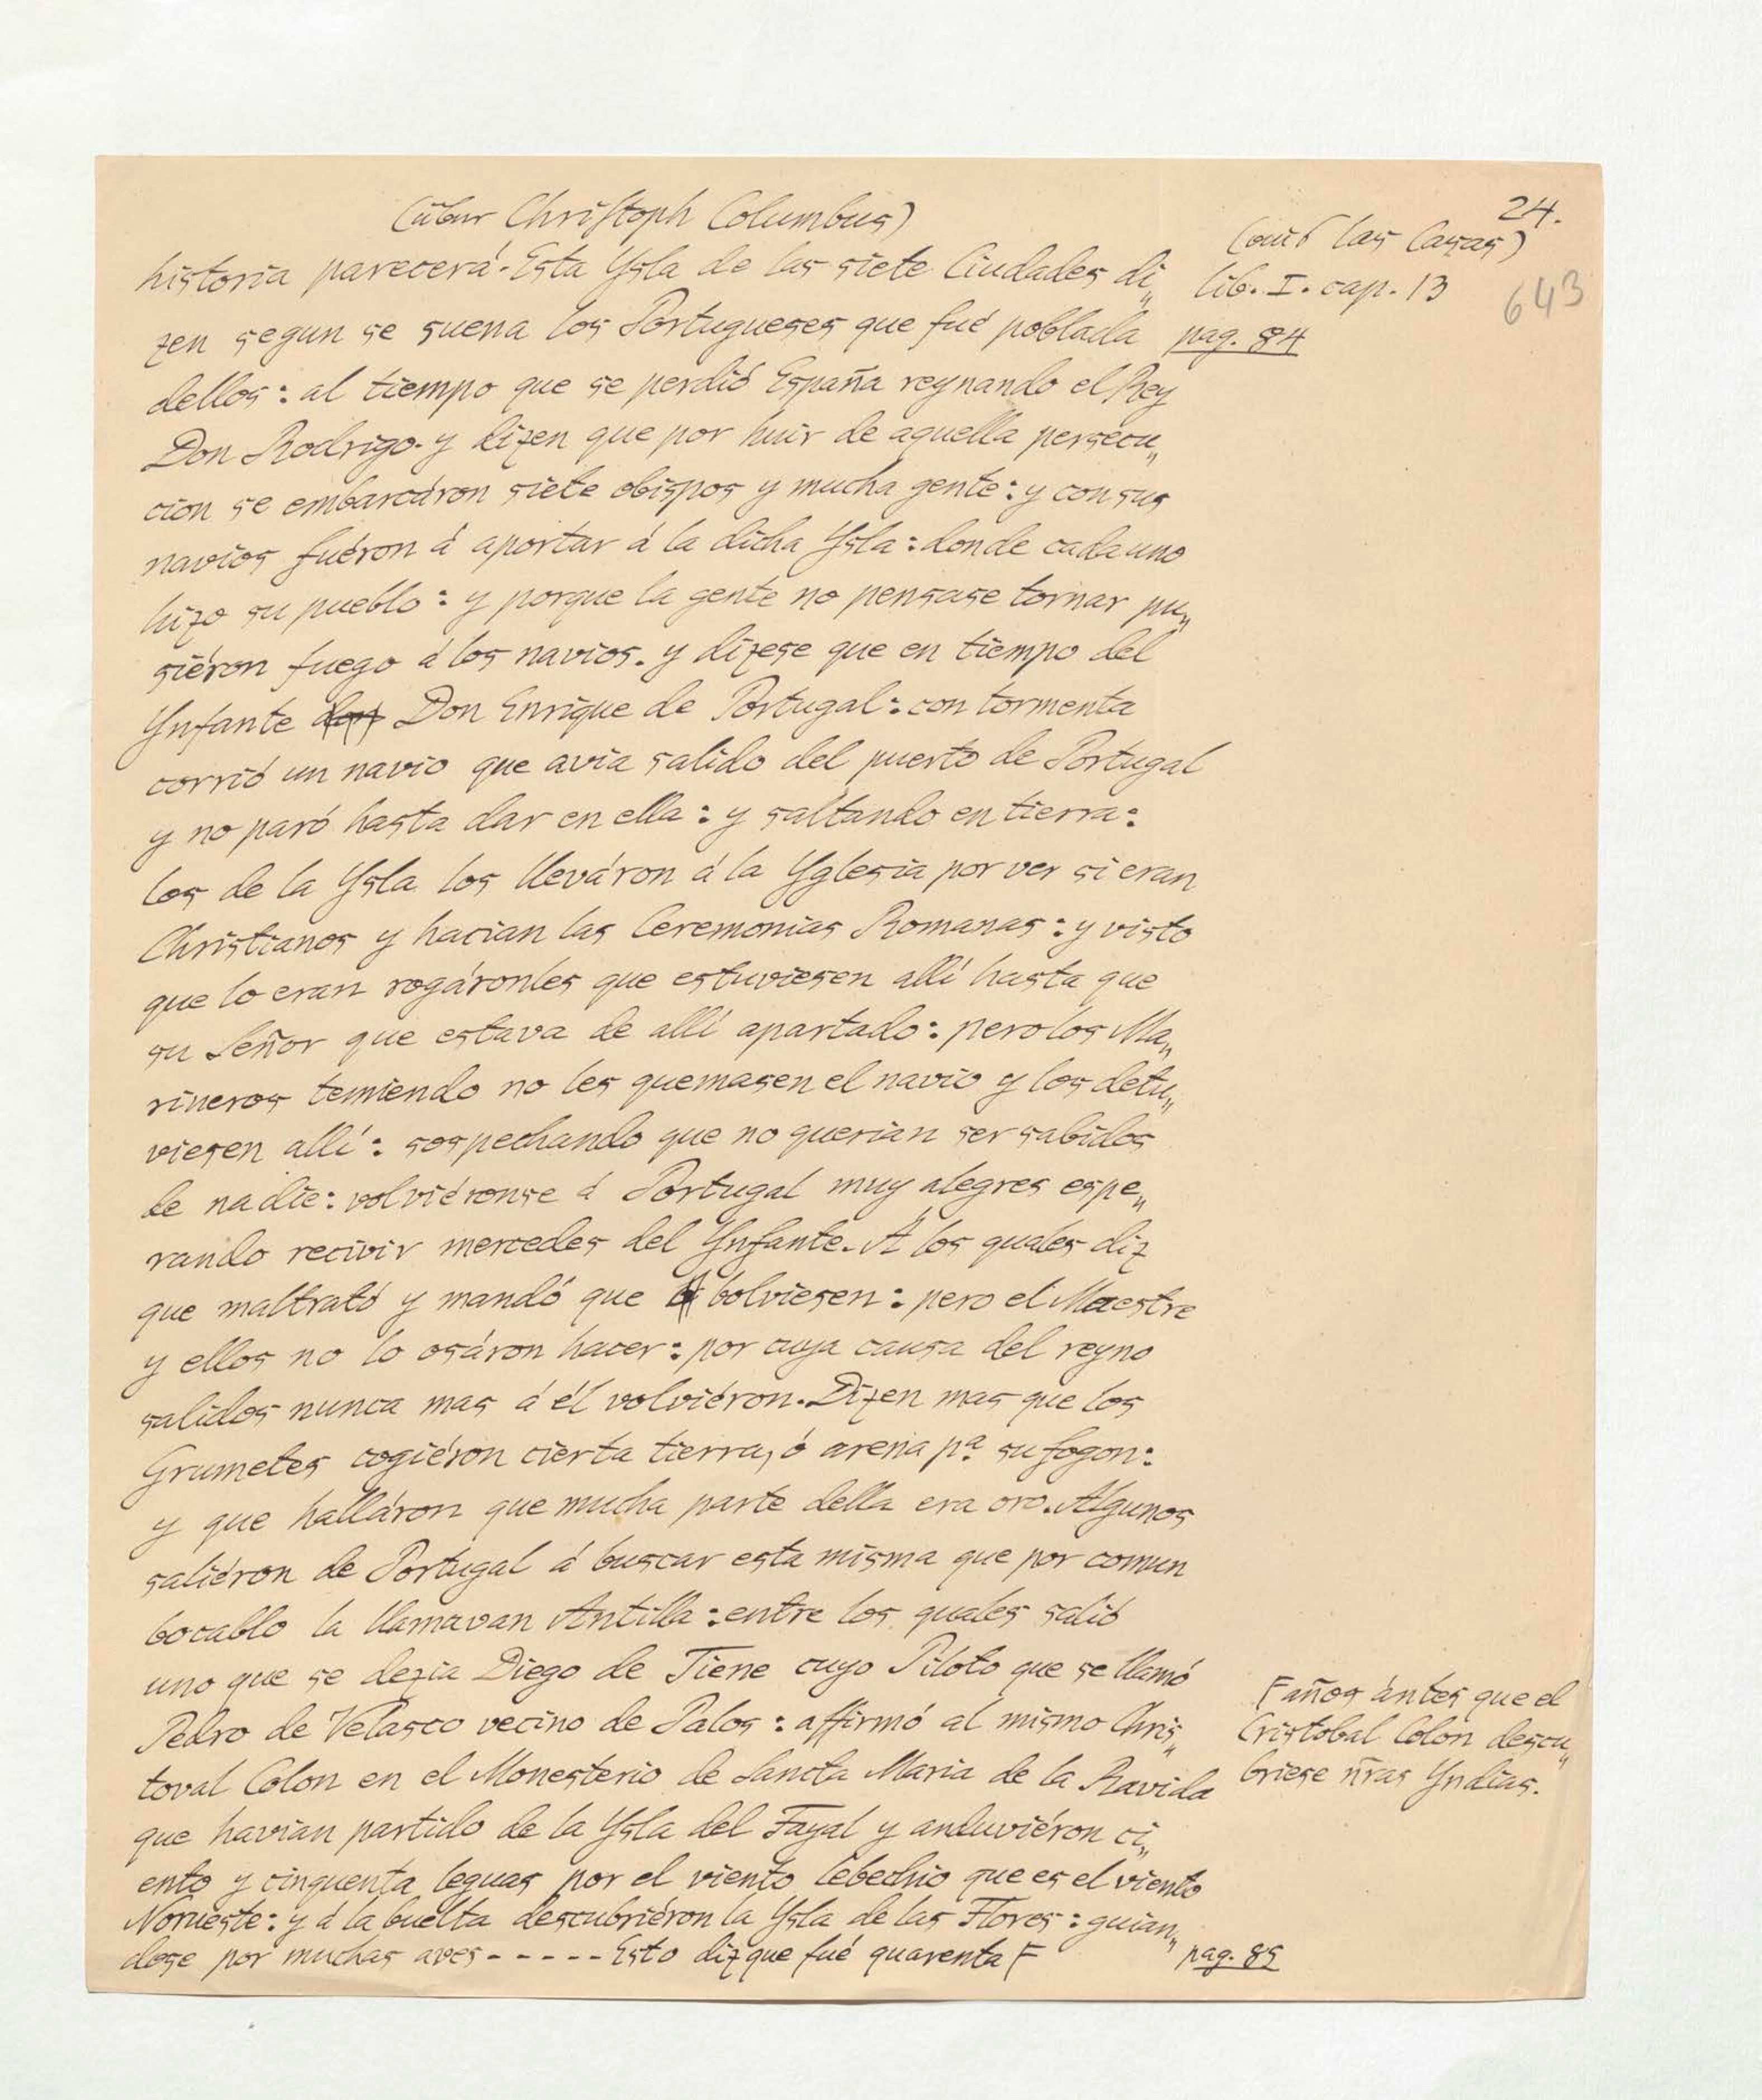 24.
(über Christoph Columbus)
(aus Las Casas)
historia parecerá. Esta Ysla de las siete Ciudades di„
lib. I. cap. 13
643
zen segun se suena los Portugueses que fué poblada
pag. 84
dellos: al tiempo que se perdió España reynando el Rey
Don Rodrigo. y dizen que por huir de aquella persecu„
cion se embarcáron siete obispos y mucha gente: y con sus
navios fuéron á aportar á la dicha Ysla: donde cada uno
hizo su pueblo: y porque la gente no pensase tornar pu„
siéron fuego á los navios. y dizese que en tiempo del
Ynfante don Don Enrique de Portugal: con tormenta
corrió un navio que avia salido del puerto de Portugal
y no paró hasta dar en ella: y saltando en tierra:
los de la Ysla los lleváron á la Yglesia por ver si eran
Christianos y hacian las Ceremonias Romanas: y visto
que lo eran rogáronles que estuviesen allí hasta que
su Señor que estava de allí apartado: pero los Ma„
rineros temiendo no les quemasen el navio y los detu„
viesen allí: sospechando que no querian ser sabidos
de nadie: volviéronse á Portugal muy alegres espe„
rando recivir mercedes del Ynfante. A los quales diz
que maltrató y mandó que bolviesen: pero el Maestre
y ellos no lo osáron hacer: por cuya causa del reyno
salidos nunca mas á él volviéron. Dizen mas que los
Grumetes cogiéron cierta tierra, ó arena pª. su fogon:
y que halláron que mucha parte della era oro. Algunos
saliéron de Portugal á buscar esta misma que por comun
bocablo la llamavan Antilla: entre los quales salió
uno que se dezia Diego de Tiene cuyo Piloto que se llamó
Pedro de Velasco vecino de Palos: affirmó al mismo Chris„
toval Colon en el Monesterio de Sancta Maria de la Ravida
que havian partido de la Ysla del Fayal y anduviéron ci„
ento y cinquenta leguas por el viento lebechio que es el viento
Norueste: y á la buelta descubriéron la Ysla de las Flores: guian„
dose por muchas aves ----- Esto diz que fué quarenta F
F años ántes que el
Cristobal Colon descu„
briese ñras Yndias.
pag. 85